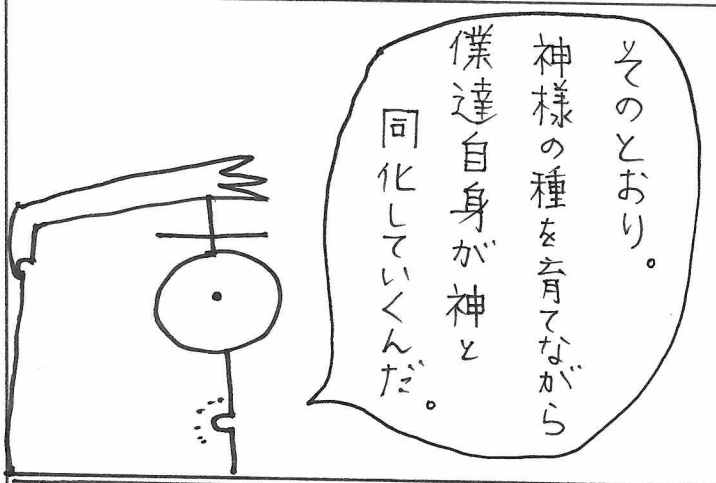 そのとおり。
神様の種を育てながら
僕達自身が神と
同化していくんだ。